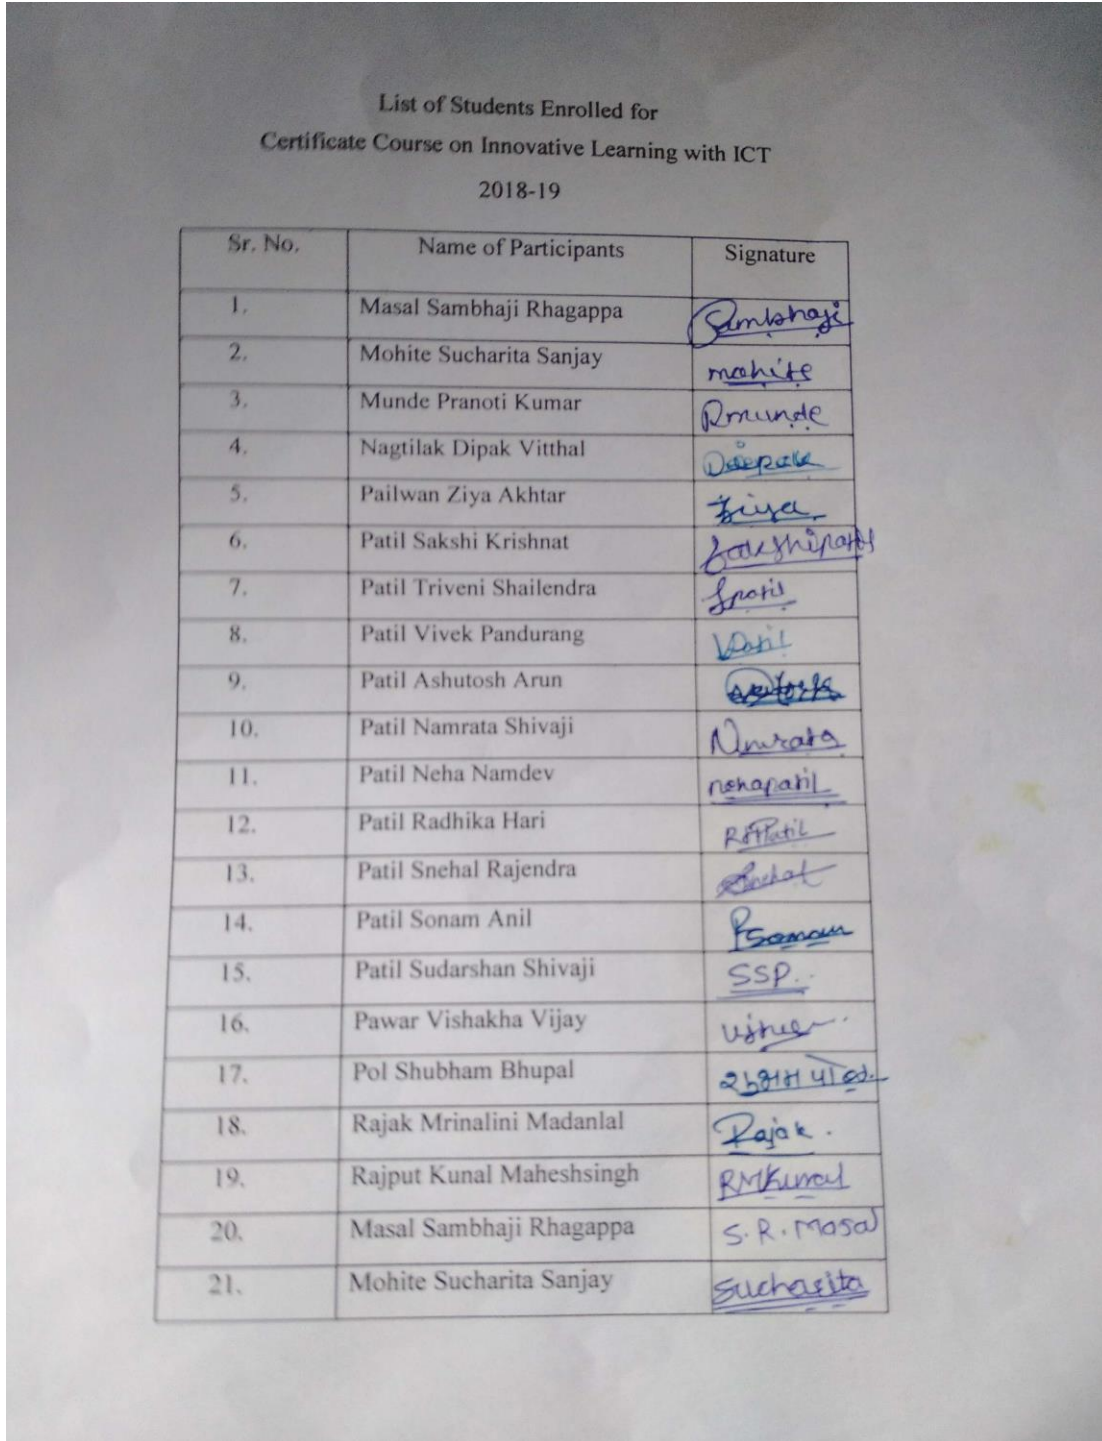 List of Students Enrolled for
Certificate Course on Innovative Learning with ICT
2018-19
Sr. No. Name of Participants Signature
1. Masal Sambhaji Rhagappa Sambhaji
2. Mohite Sucharita Sanjay mohite
3. Munde Pranoti Kumar Pmunde
4. Nagtilak Dipak Vitthal Deepak
5. Pailwan Ziya Akhtar Ziya
6. Patil Sakshi Krishnat Sakshipatil
7. Patil Triveni Shailendra Spatil
8. Patil Vivek Pandurang VPatil
9. Patil Ashutosh Arun
10. Patil Namrata Shivaji Nmrata
11. Patil Neha Namdev nehapatil
12. Patil Radhika Hari RHPatil
13. Patil Snehal Rajendra Snehal
14. Patil Sonam Anil PSonam
15. Patil Sudarshan Shivaji SSP..
16. Pawar Vishakha Vijay
17. Pol Shubham Bhupal शुभम पोळ.
18. Rajak Mrinalini Madanlal Rajak.
19. Rajput Kunal Maheshsingh RMKunal
20. Masal Sambhaji Rhagappa S.R.Masal
21. Mohite Sucharita Sanjay Sucharita